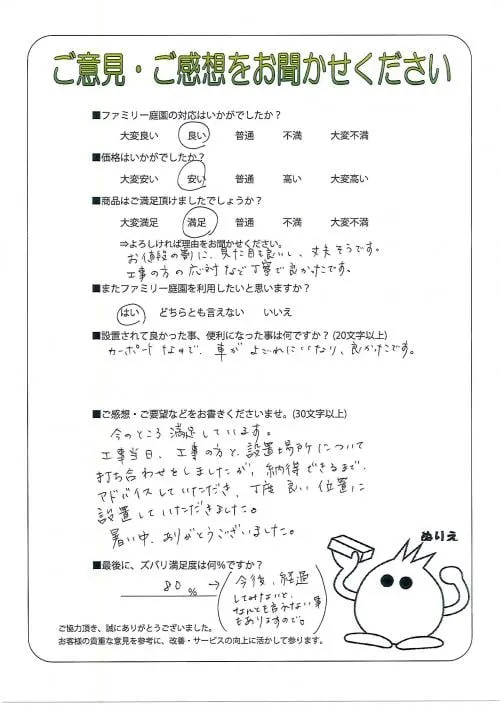 ご意見・ご感想をお聞かせください
■ファミリー庭園の対応はいかがでしたか？
大変良い 良い 普通 不満 大変不満
■価格はいかがでしたか？
大変安い 安い 普通 高い 大変高い
■商品はご満足頂けましたでしょうか？
大変満足 満足 普通 不満 大変不満
⇒よろしければ理由をお聞かせください。
お値段の割に、見た目も良いし、丈夫そうです。
工事の方の応対など丁寧で良かったです。
■またファミリー庭園を利用したいと思いますか？
はい どちらとも言えない いいえ
■設置されて良かった事、便利になった事は何ですか？(20文字以上)
カーポートなので、車がよごれにくいなり、良かたです。
■ご感想・ご要望などをお書きくださいませ。(30文字以上)
今のところ満足しています。
工事当日、工事の方と、設置場所について
打ち合わせをしましたが、納得できるまで、
アドバイスしていただき、丁度良い位置に
設置していただきました。
暑い中、ありがとうございました。
ぬりえ
■最後に、ズバリ満足度は何％ですか？
80 %
(今後、経過
してみないと、
なんとも言えない事
もありますので。)
ご協力頂き、誠にありがとうございました。
お客様の貴重な意見を参考に、改善・サービスの向上に活かして参ります。